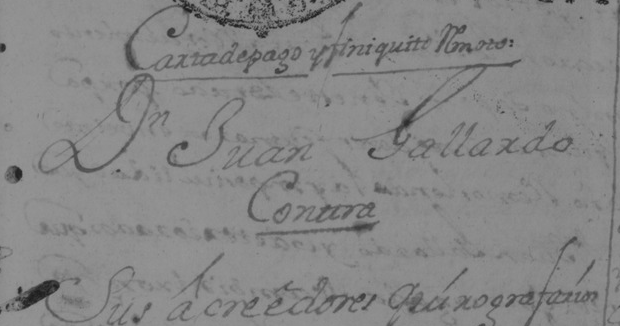 Carta de pago y finiquito Rmoto:
Dn Juan Gallardo
Contra
Sus acreedores quirografarios